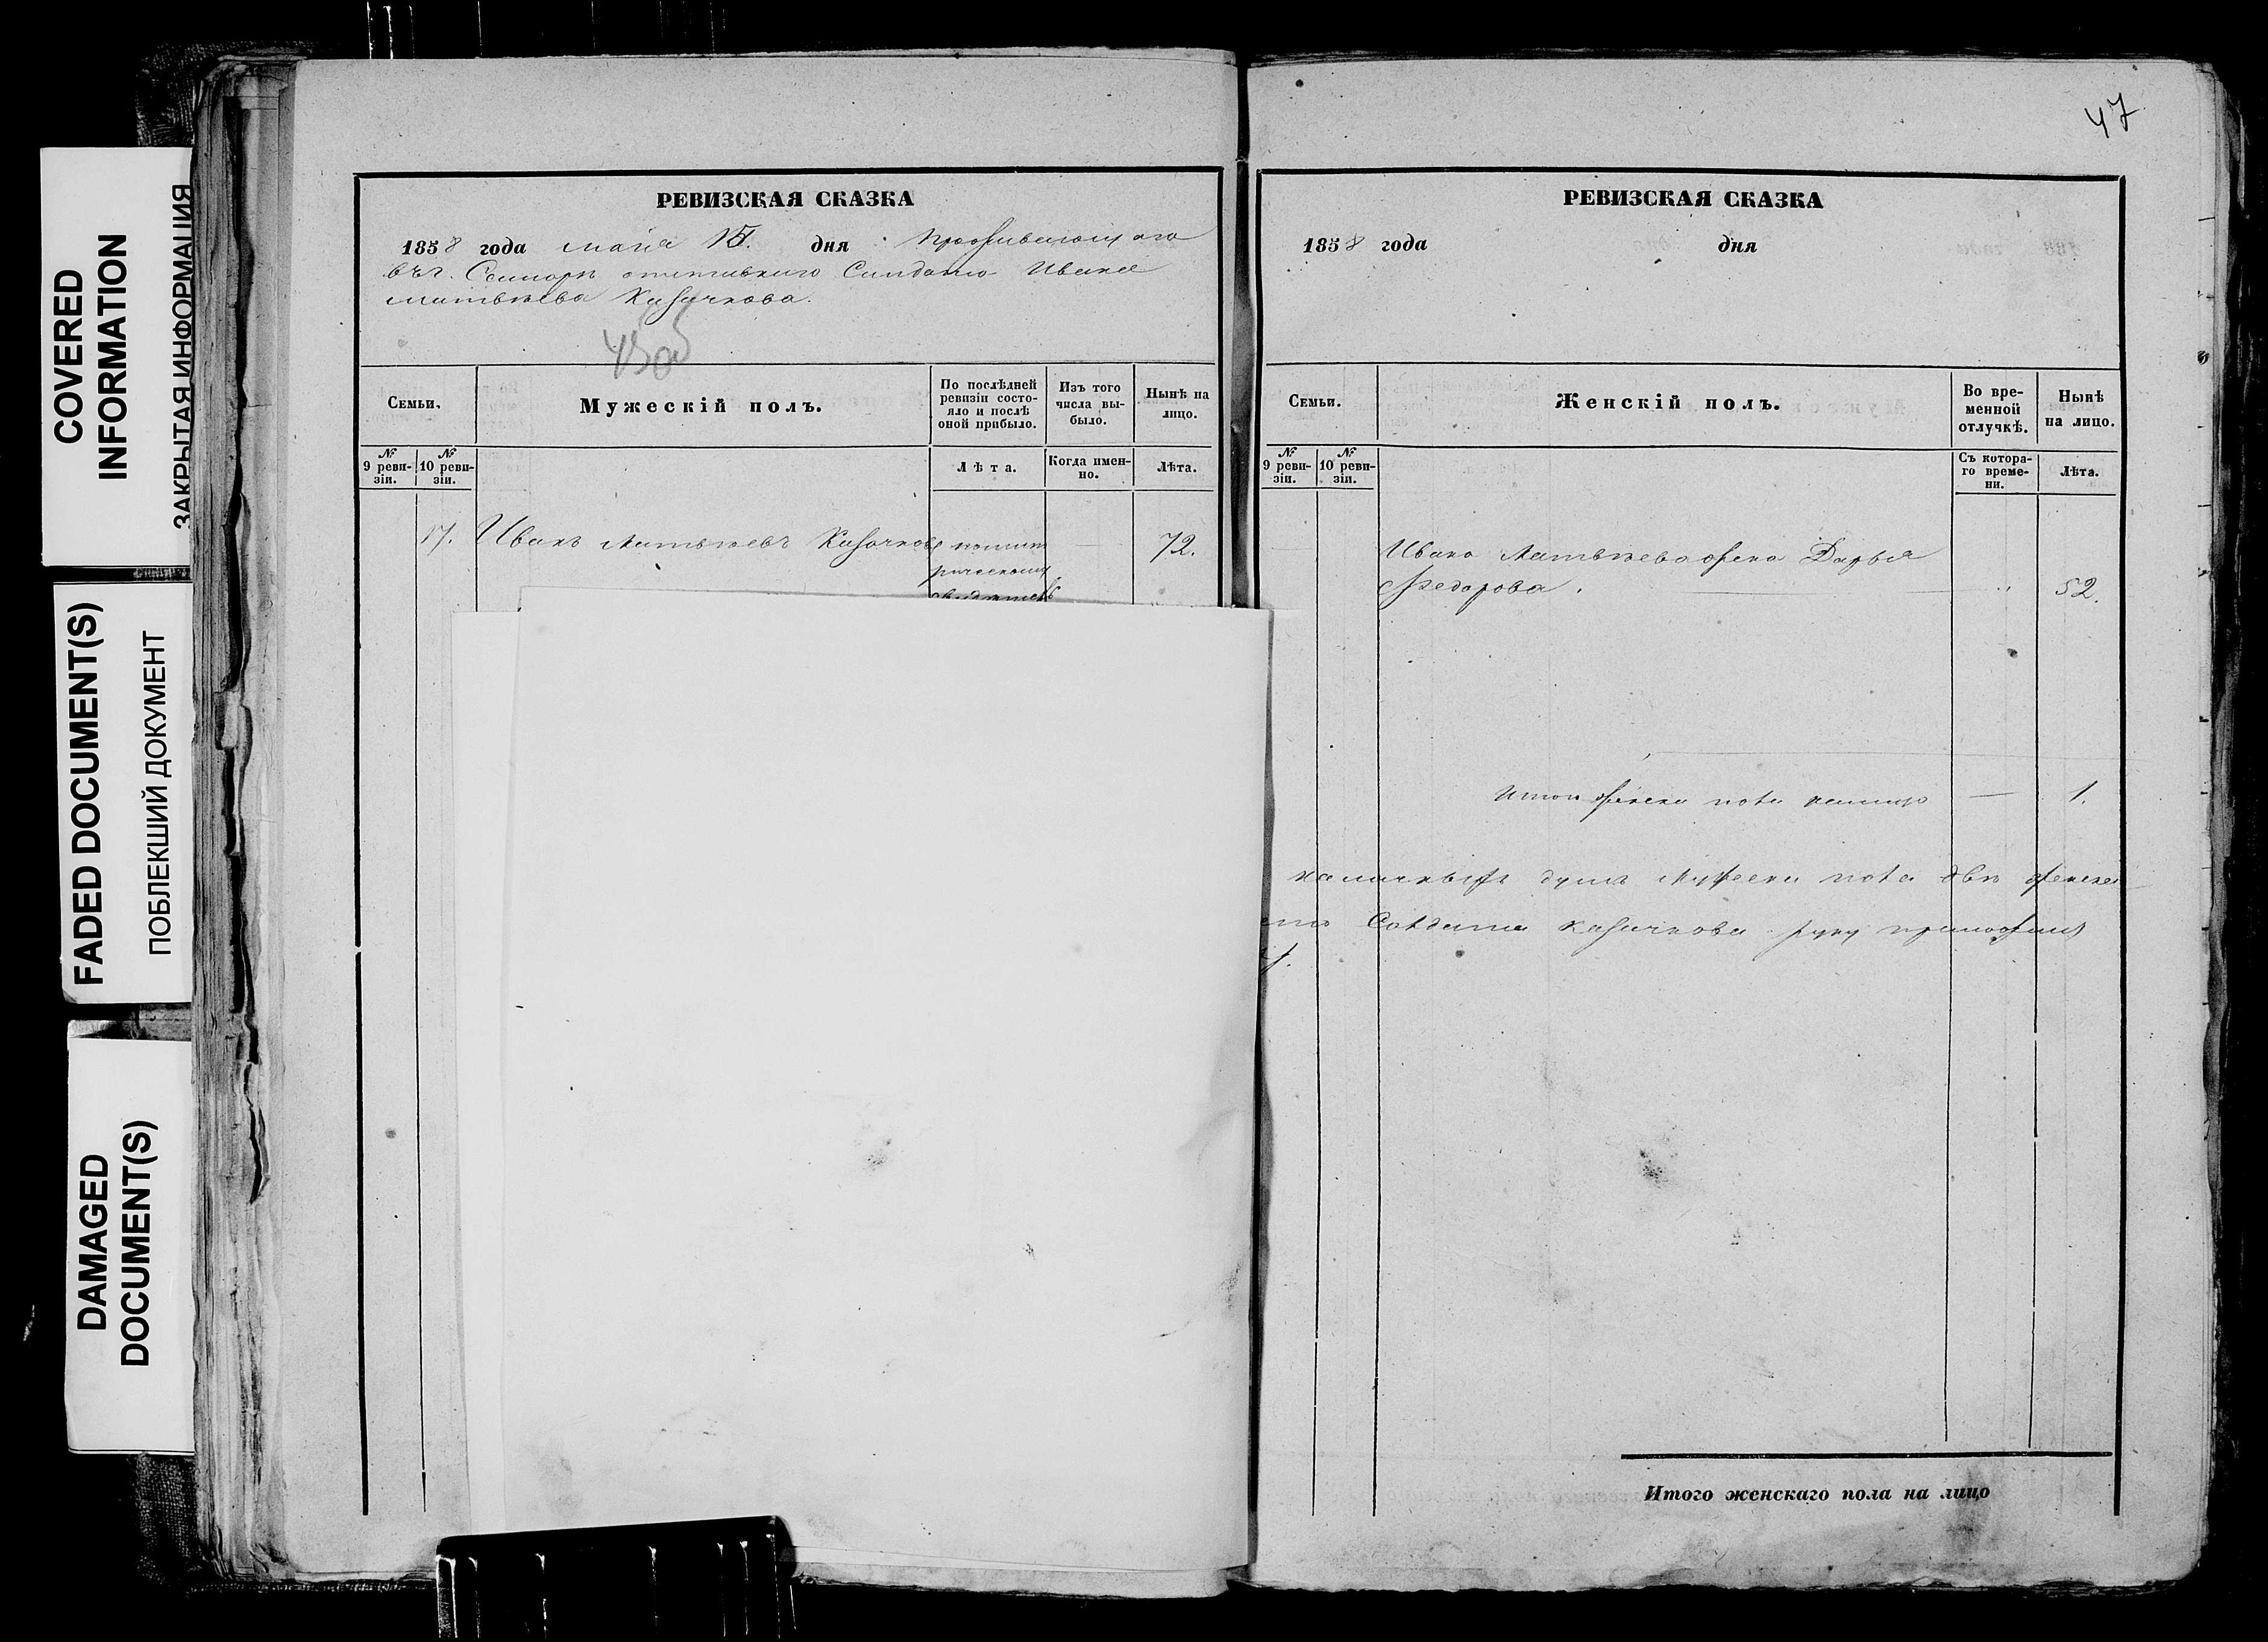 COVERED
INFORMATION
ЗАКРЫТАЯ ИНФОРМАЦИЯ
FADED DOCUMENT(S)
ПОБЛЕКШИЙ ДОКУМЕНТ
DAMAGED
DOCUMENT(S)
РЕВИЗСКАЯ СКАЗКА
1858 года мая 15. дня Проживающаго
въ г. отставнаго Солдата Ивана
Матвѣева Казачкова.
Семьи.
Мужескій полъ.
По послѣдней
ревизіи состо-
яло и послѣ
оной прибыло.
Изъ того
числа вы-
было.
Нынѣ на
лицо.
№
9 реви-
зіи.
№
10 реви-
зіи.
Лѣта.
Когда имен-
но.
Лѣта.
17. Иванъ Матвѣевъ Казачковъ 72.
47
РЕВИЗСКАЯ СКАЗКА
1858 года дня
Семьи.
Женскій полъ.
Во вре-
менной
отлучкѣ.
Нынѣ
на лицо.
№
9 реви-
зіи.
№
10 реви-
зіи.
Съ котора-
го време-
ни.
Лѣта.
Ивана Матвѣева жена Дарья
Федорова. 52.
Итого женска пола налицо — 1.
наличныхъ душъ мужеска пола двѣ женска
Солдата Казачкова руку приложилъ
Итого женскаго пола на лицо